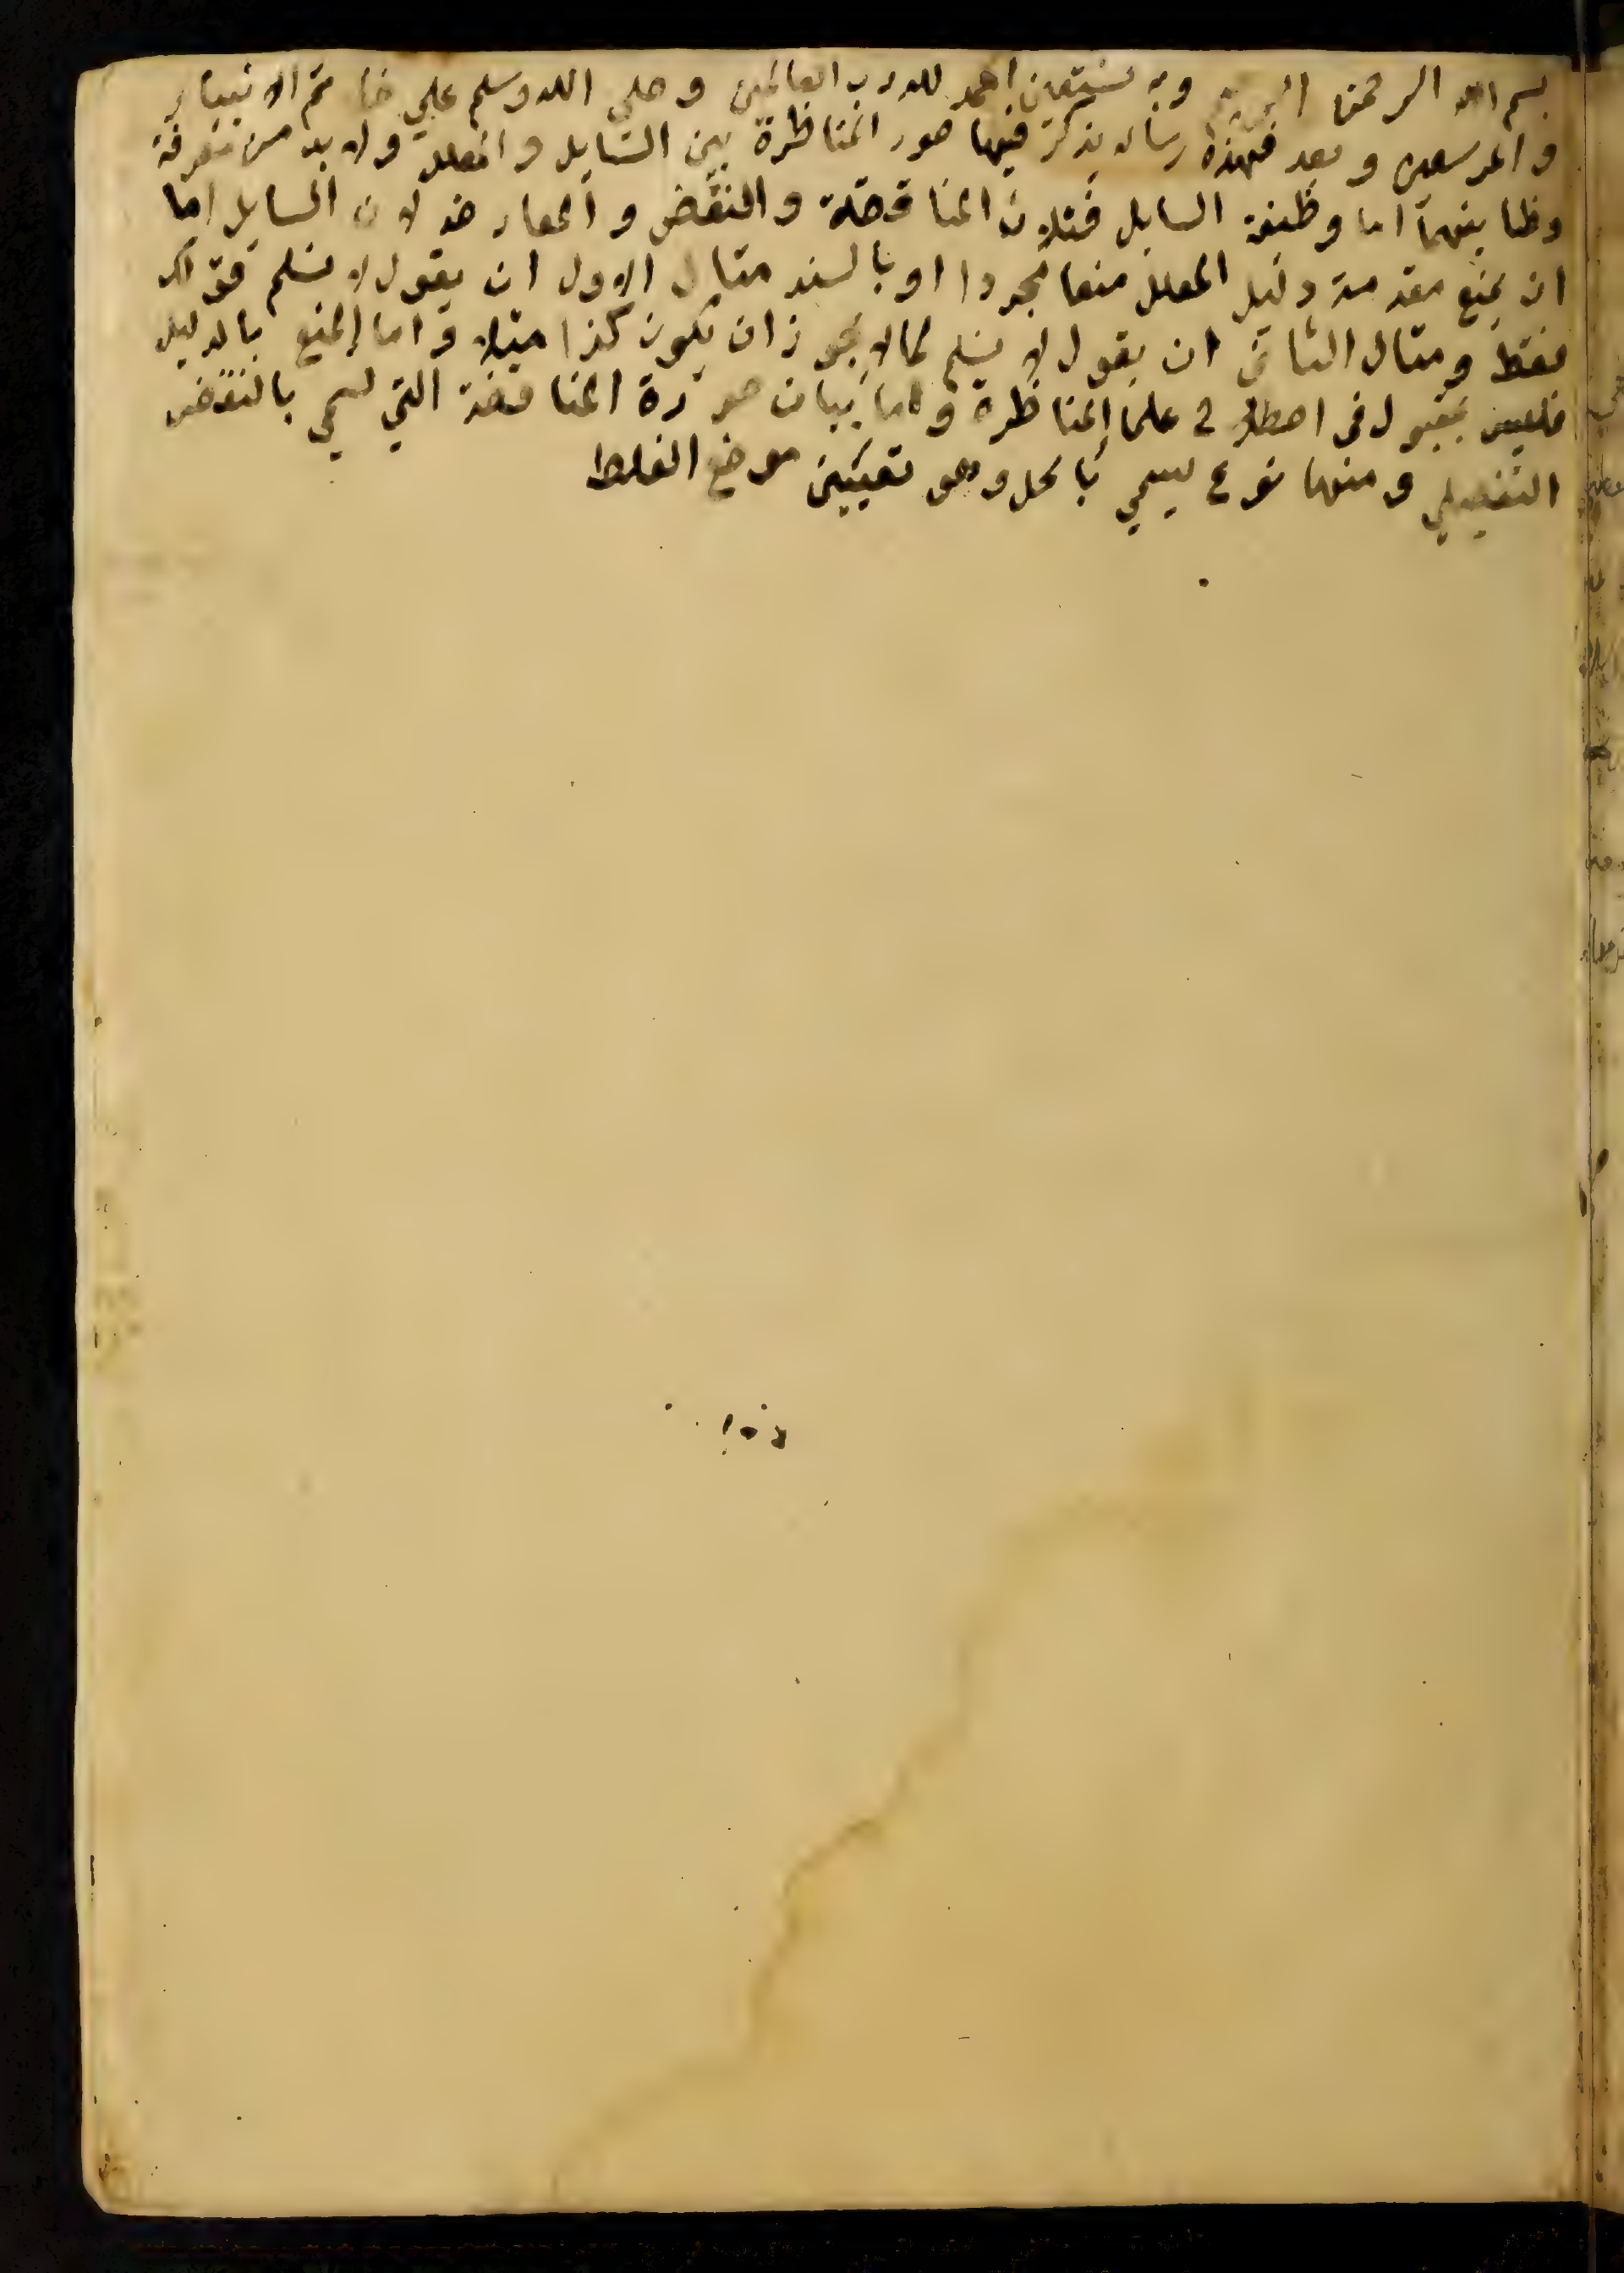 بسم الله الرحمن الرحيم وبه نستعين الحمد لله رب العالمين وصلى الله وسلم علي خاتم الانبياء
والمرسلين وبعد فهذه رساله يذكر فيها صور المناظرة بين السايل والمعلل ولا بد من معرفة
وظايفهما اما وظيفة السايل فثلاث المناقضة والنقض والمعارضه لان السايل اما
ان يمنع مقدمة دليل المعلل منعا مجردا او بالسند مثال الاول ان يقول لا نسلم قولك
فقط ومثال الثاني ان يقول لا نسلم لم لا يجوز ان يكون كذا مثلا واما المنع بالدليل
فليس بمقبول في اصطلاح علما المناظرة واما بيان صورة المناقضة التي تسمي بالنقض
التفصيلي ومنها نوع يسمي بالحل وهو تعيين موضع الغلط